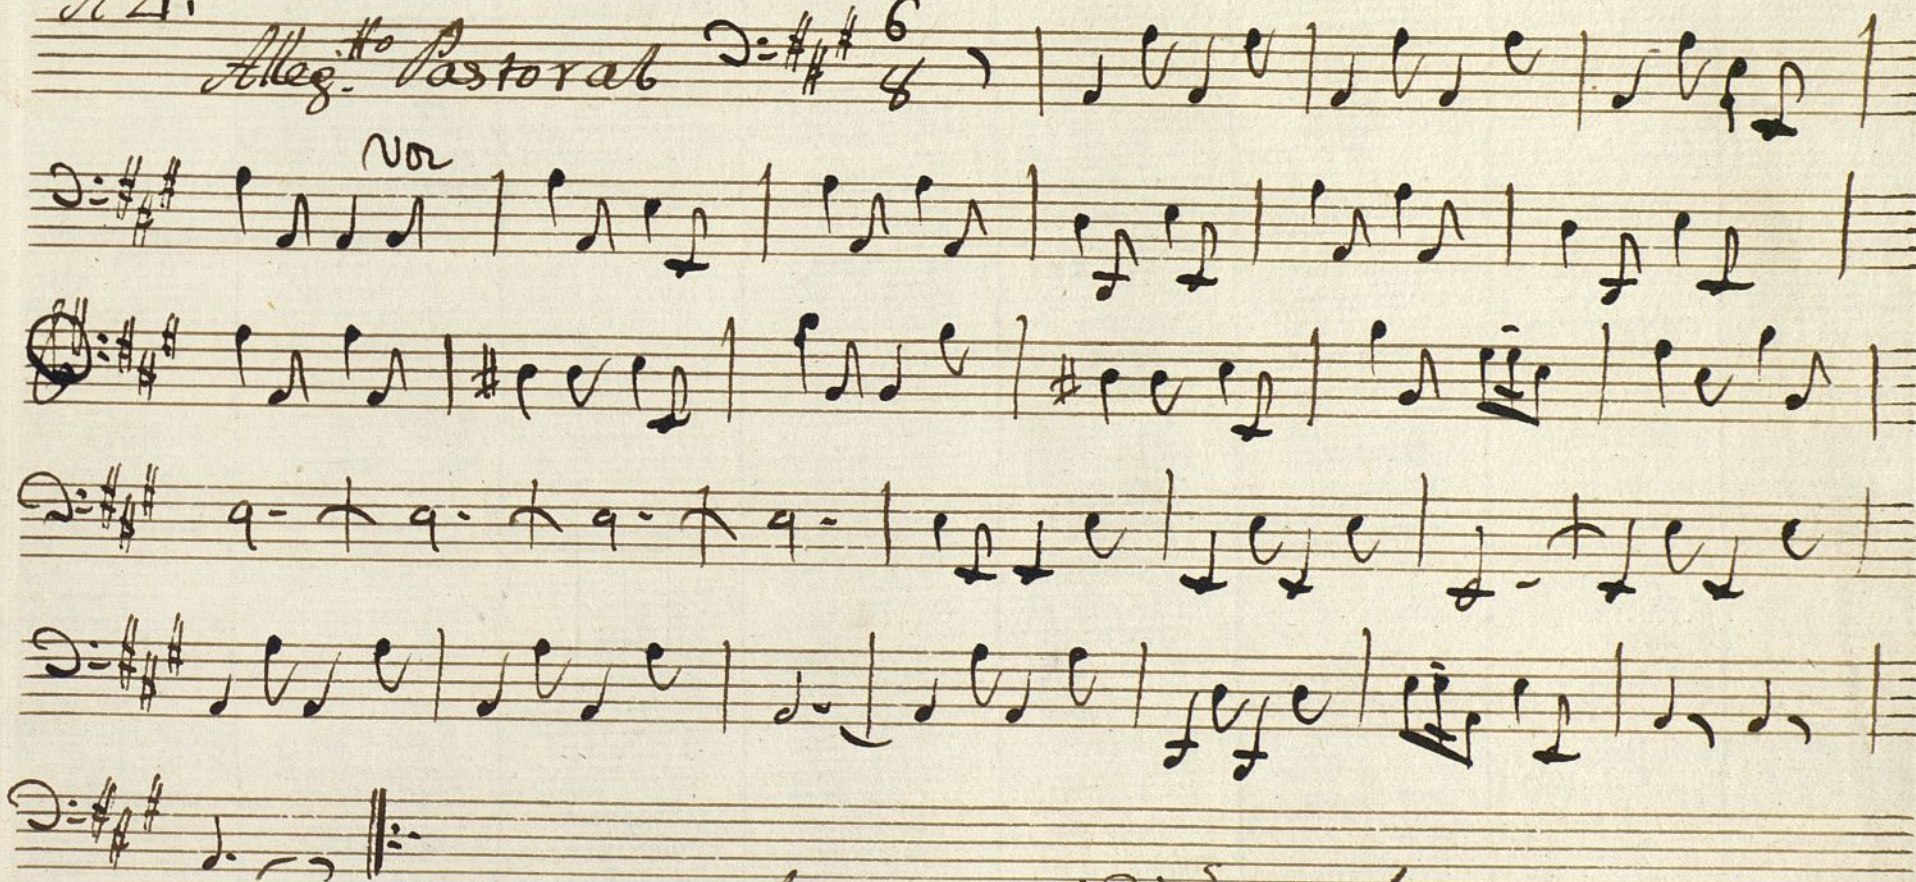 Alleg.tto Pastoral 6 8
Voz